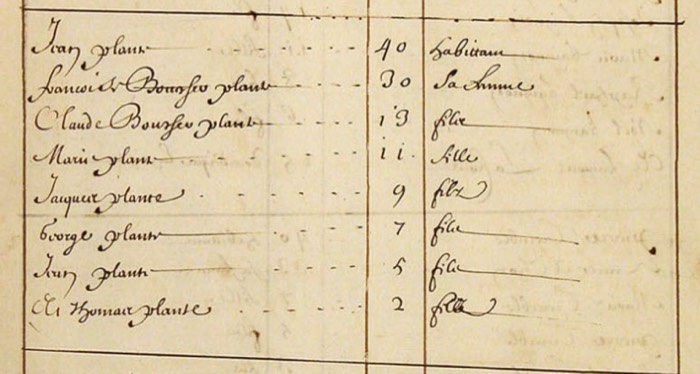 Jean plante 40 habittant
francoise Boucher plante 30 Sa femme
Claude Boucher plante 13 filz
Marie plante 11 fille
Jacques plante 9 filz
George plante 7 filz
Jean plante 5 filz
Thomas plante 2